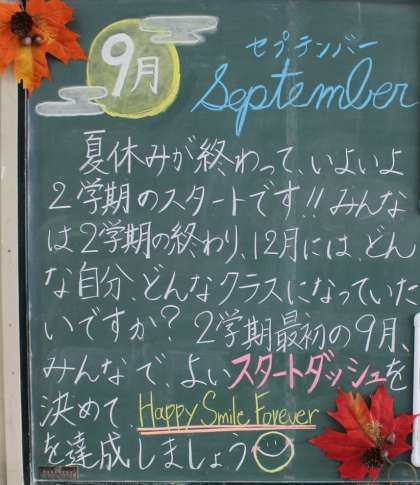 9月
セプテンバー
September
夏休みが終わって、いよいよ
2学期のスタートです!!みんな
は2学期の終わり、12月には、どん
な自分、どんなクラスになっていた
いですか?2学期最初の9月、
みんなで、よいスタートダッシュを
決めて、Happy Smile Forever
を達成しましょう